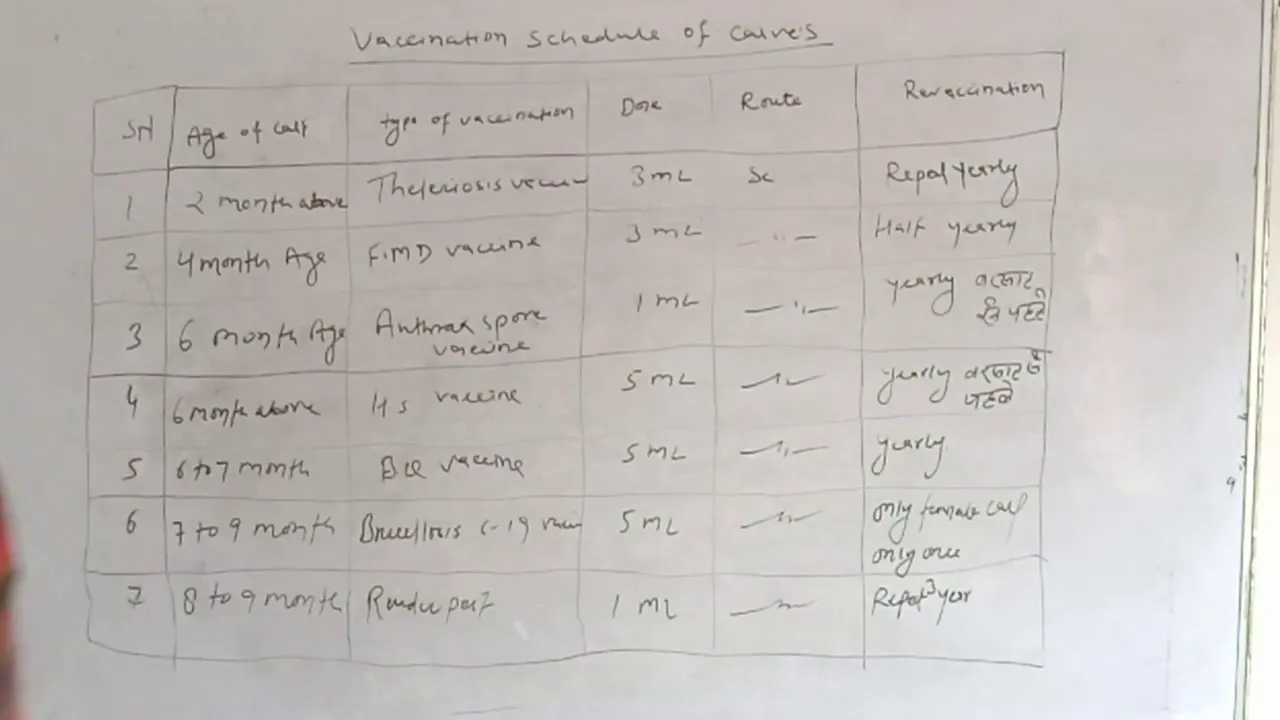 Vaccination Schedule of Calve's
SN Age of Calf type of vaccination Dose Route Revaccination
1 2 month above Theleriosis 3 mL Sc Repat yearly
2 4 month Age F.M D vaccine 3 mL — " — Half yearly
3 6 month Age Anthrax spore vaccine 1 mL — " — yearly बरसात से पहले
4 6 month above H s vaccine 5 mL — " — yearly बरसात से पहले
5 6 to 7 month BQ vaccine 5 mL — " — yearly
6 7 to 9 month 5 mL — " — only female calf only once
7 8 to 9 month 1 mL — " — Repat 3 year